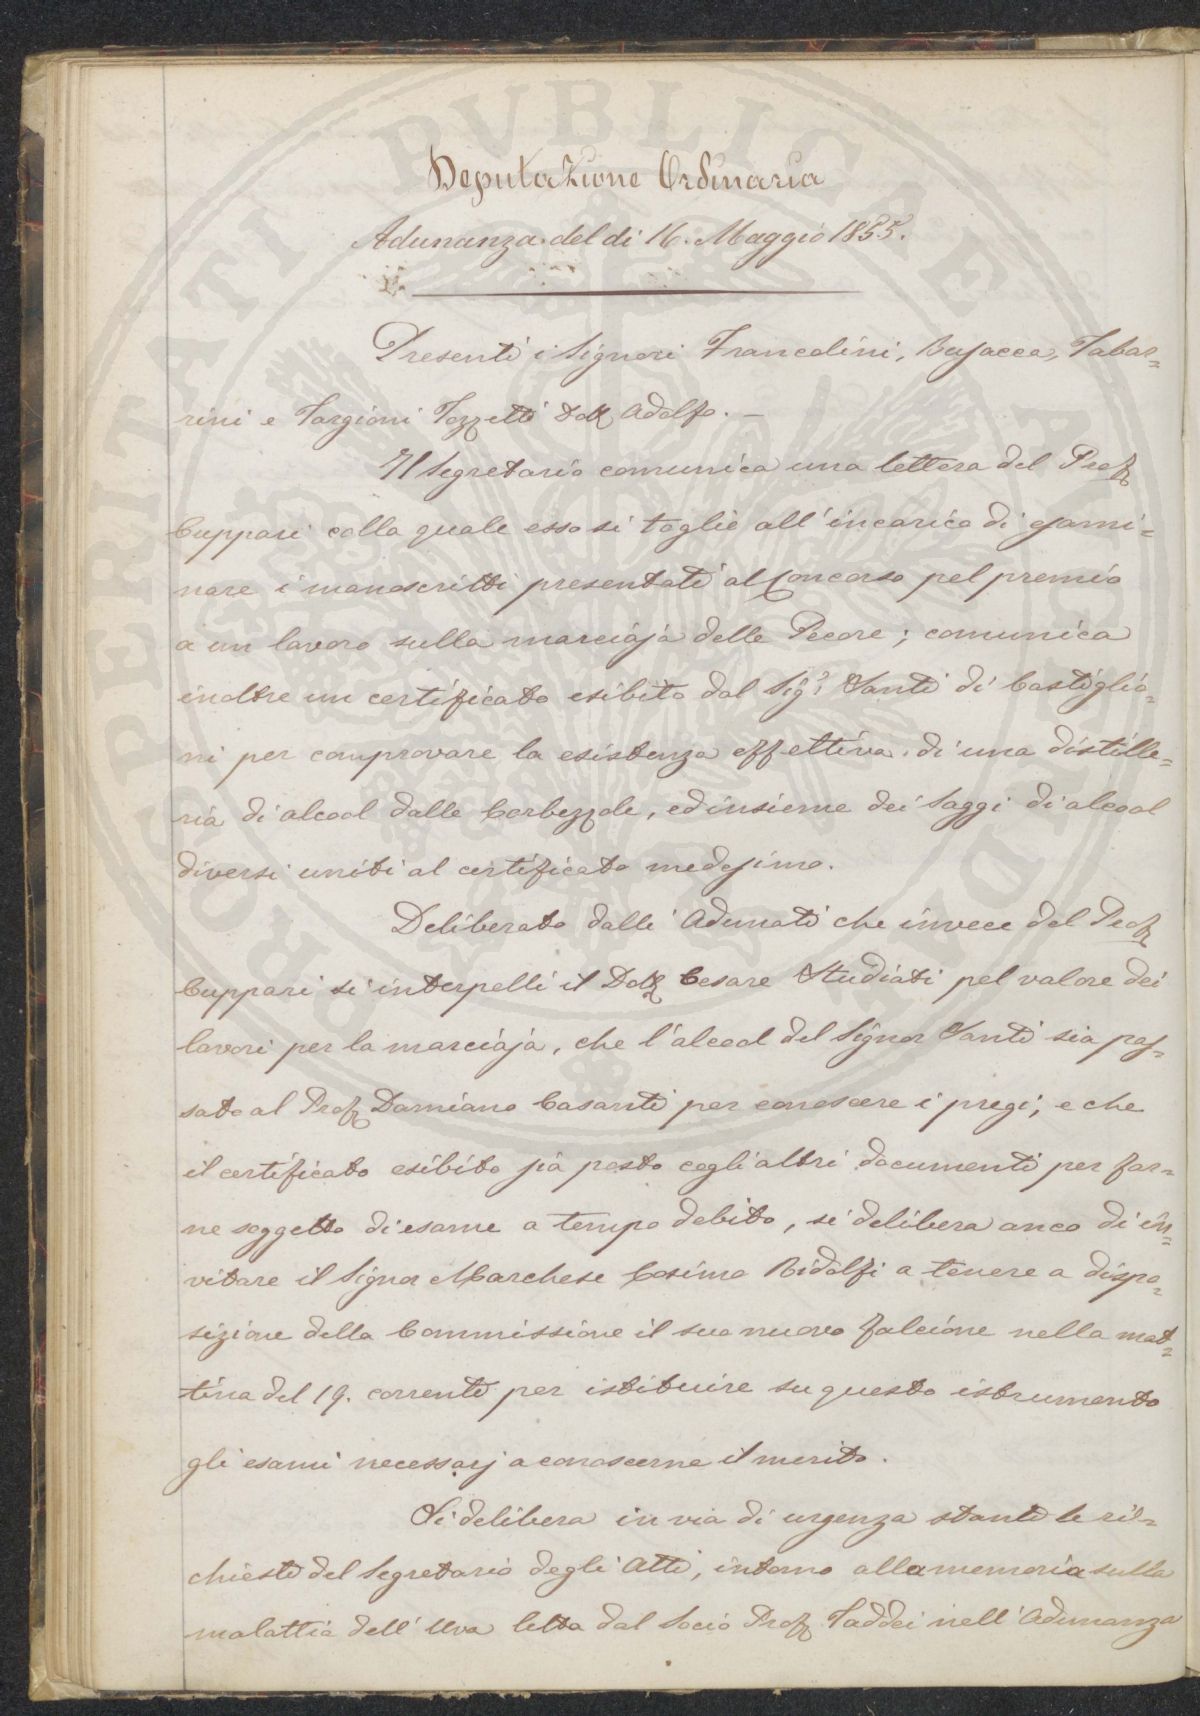 Deputazione Ordinaria
Adunanza del di 16. Maggio 1855.
Presenti i Signori Francolini, Busacca, Tabar=
rini e Targioni Tozzetti Dott Adolfo. —
Il Segretario comunica una lettera del Prof
Cuppari colla quale esso si toglie all'incarico di esami=
nare i manoscritti presentati al Concorso pel premio
a un lavoro sulla marciaja delle Pecore; comunica
inoltre un certificato esibito dal Sig.r Santi di Castiglio=
ni per comprovare la esistenza effettiva di una distille=
ria di alcool dalle Corbezzole, ed insieme dei Saggi di alcool
diversi uniti al certificato medesimo.
Deliberato dalli Adunati che invece del Prof
Cuppari si interpelli il Dott Cesare Studiati pel valore dei
lavori per la marciaja, che l'alcool del Signor Santi sia pas=
sato al Prof Damiano Casanti per conoscere i pregi, e che
il certificato esibito sia posto cogli altri documenti per far=
ne soggetto di esame a tempo debito, si delibera anco di in=
vitare il Signor Marchese Cosimo Ridolfi a tenere a dispo=
sizione della Commissione il suo nuovo falcione nella mat=
tina del 19. corrente per istituire su questo istrumento
gli esami necessarj a conoscerne il merito.
Si delibera in via di urgenza stante le ri=
chieste del Segretario degli Atti, intorno alla memoria sulla
malattia dell'Uva letta dal Socio Prof Taddei nell'Adunanza
PROSPERITATI PVBLICAE AVGENDAE